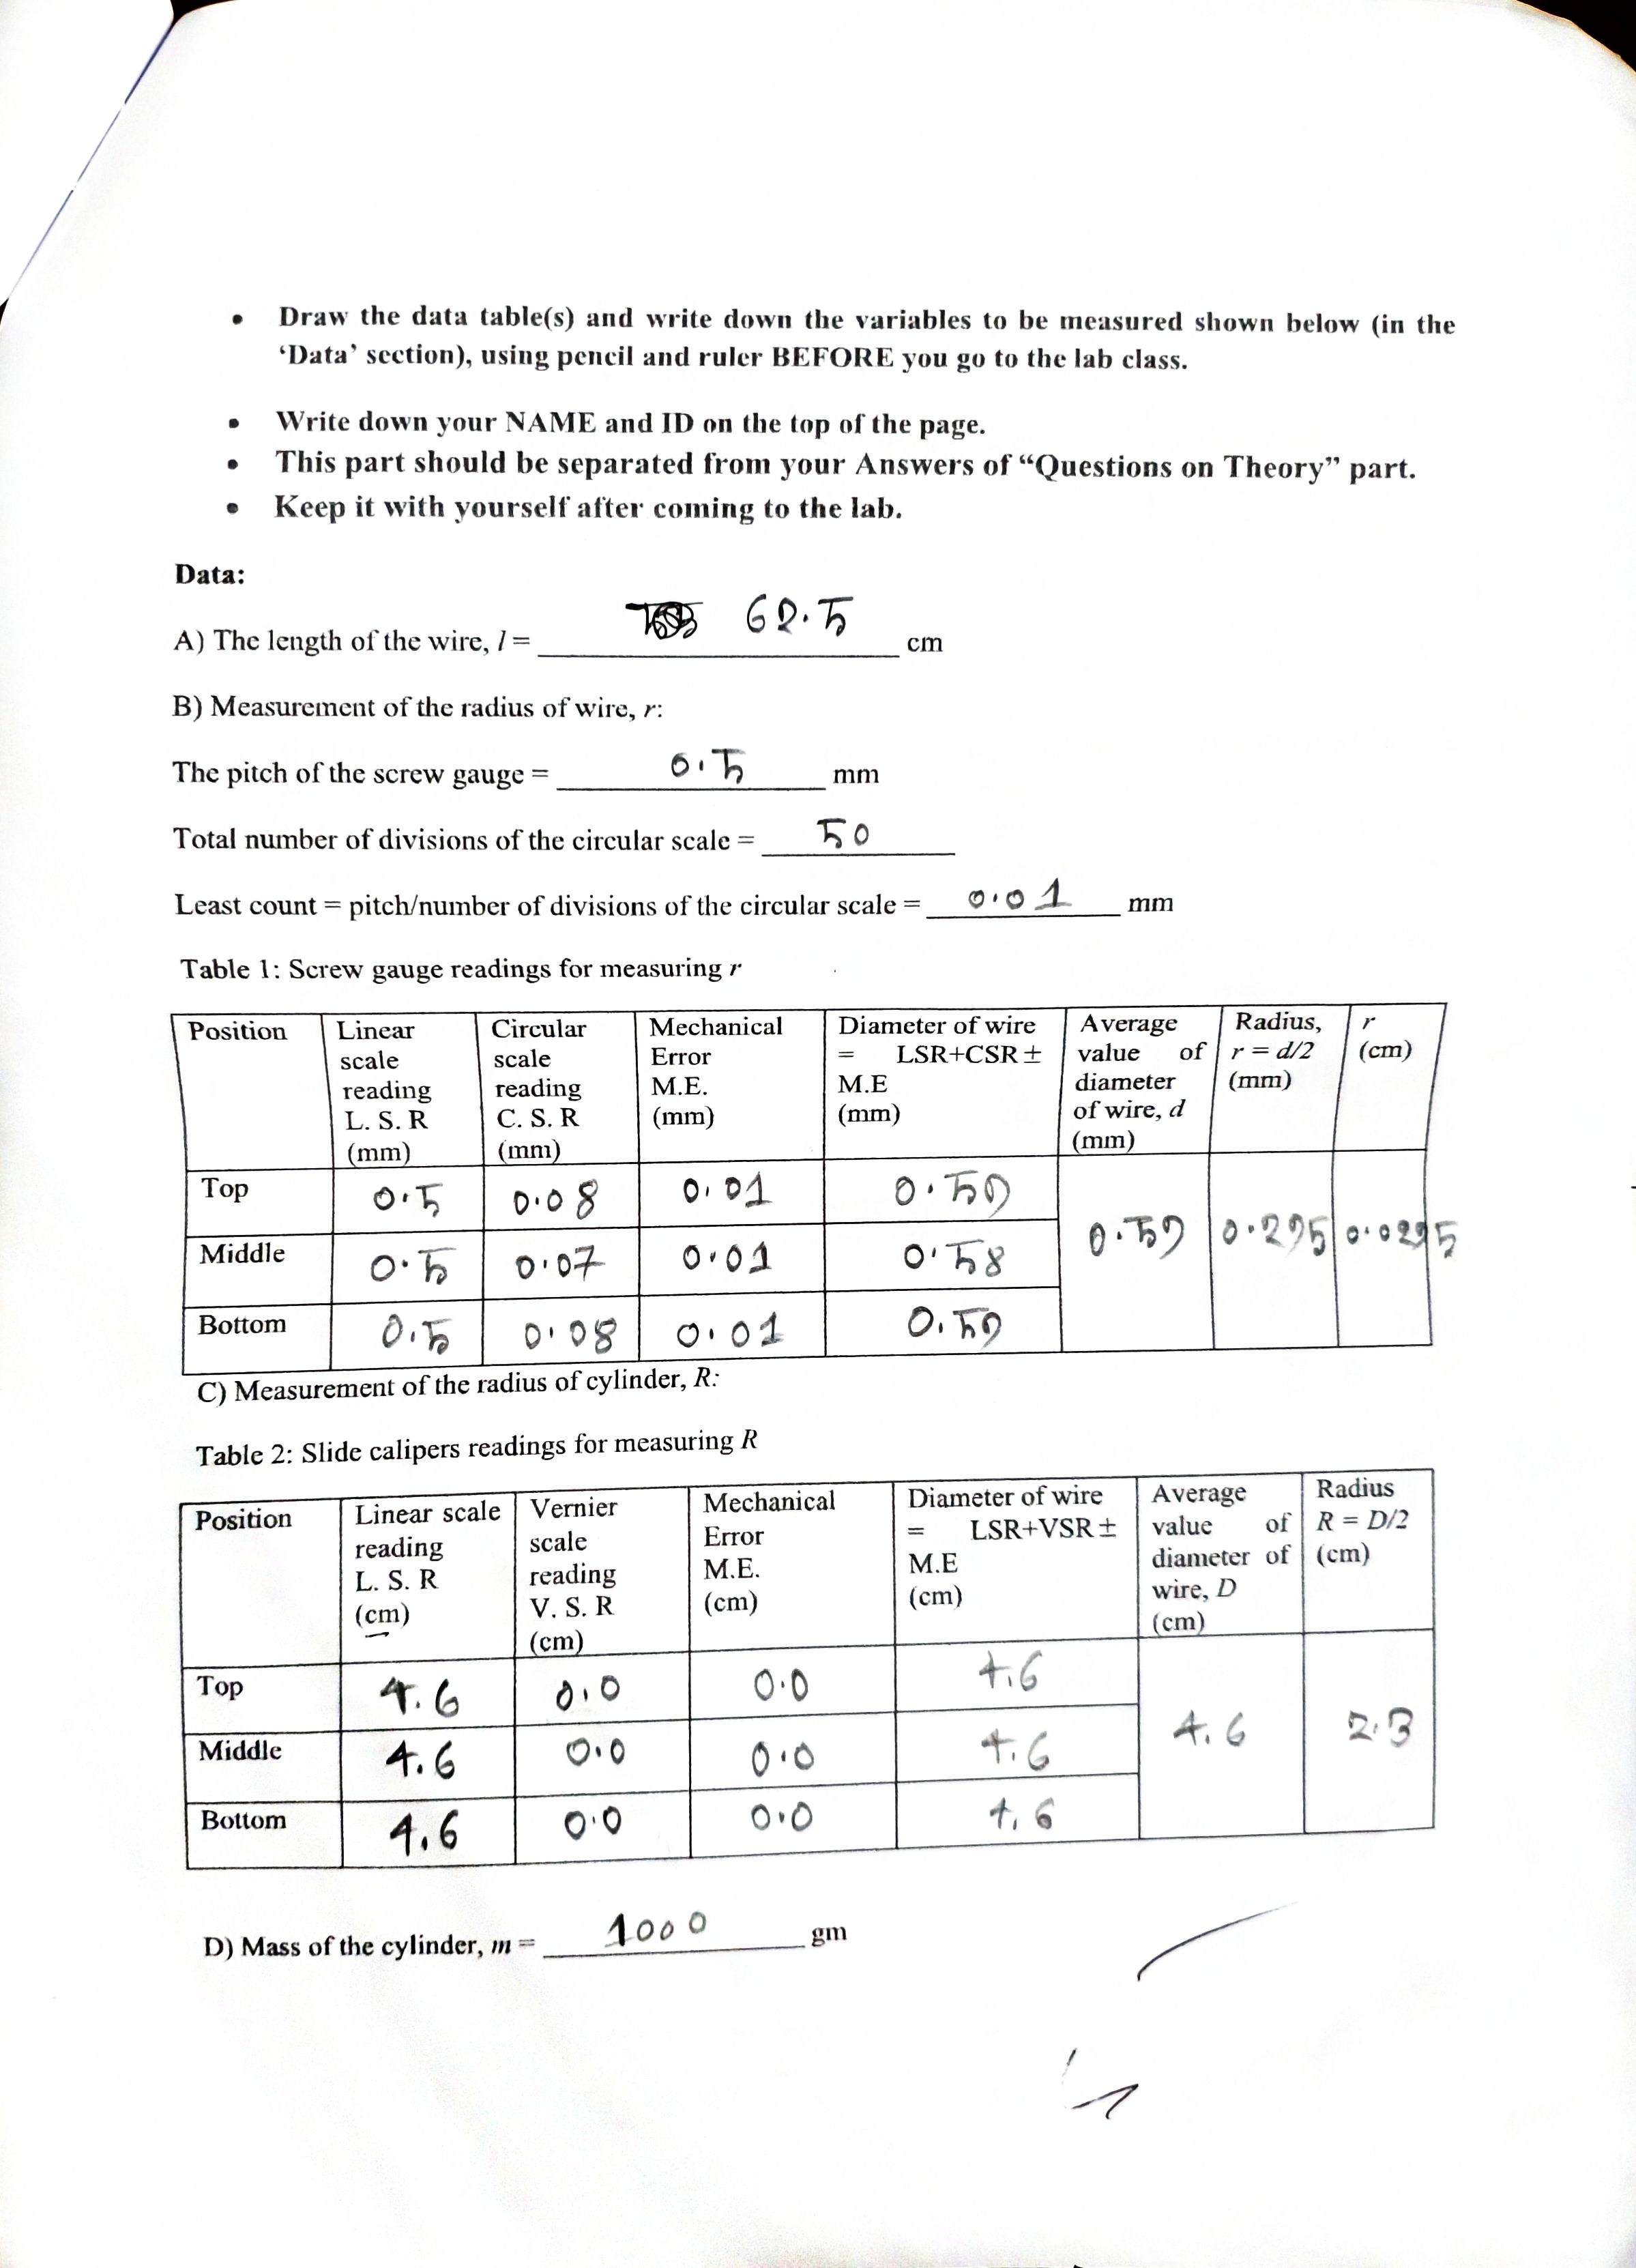 • Draw the data table(s) and write down the variables to be measured shown below (in the
‘Data’ section), using pencil and ruler BEFORE you go to the lab class.
• Write down your NAME and ID on the top of the page.
• This part should be separated from your Answers of “Questions on Theory” part.
• Keep it with yourself after coming to the lab.
Data:
A) The length of the wire, l = 62.5 cm
B) Measurement of the radius of wire, r:
The pitch of the screw gauge = 0.5 mm
Total number of divisions of the circular scale = 50
Least count = pitch/number of divisions of the circular scale = 0.01 mm
Table 1: Screw gauge readings for measuring r
Position
Linear
scale
reading
L. S. R
(mm)
Circular
scale
reading
C. S. R
(mm)
Mechanical
Error
M.E.
(mm)
Diameter of wire
= LSR+CSR ±
M.E
(mm)
Average
value of
diameter
of wire, d
(mm)
Radius,
r = d/2
(mm)
r
(cm)
Top 0.5 0.08 0.01 0.59
Middle 0.5 0.07 0.01 0.58 0.59 0.295 0.0295
Bottom 0.5 0.08 0.01 0.59
C) Measurement of the radius of cylinder, R:
Table 2: Slide calipers readings for measuring R
Position
Linear scale
reading
L. S. R
(cm)
Vernier
scale
reading
V. S. R
(cm)
Mechanical
Error
M.E.
(cm)
Diameter of wire
= LSR+VSR ±
M.E
(cm)
Average
value of
diameter of
wire, D
(cm)
Radius
R = D/2
(cm)
Top 4.6 0.0 0.0 4.6
Middle 4.6 0.0 0.0 4.6 4.6 2.3
Bottom 4.6 0.0 0.0 4.6
D) Mass of the cylinder, m = 1000 gm